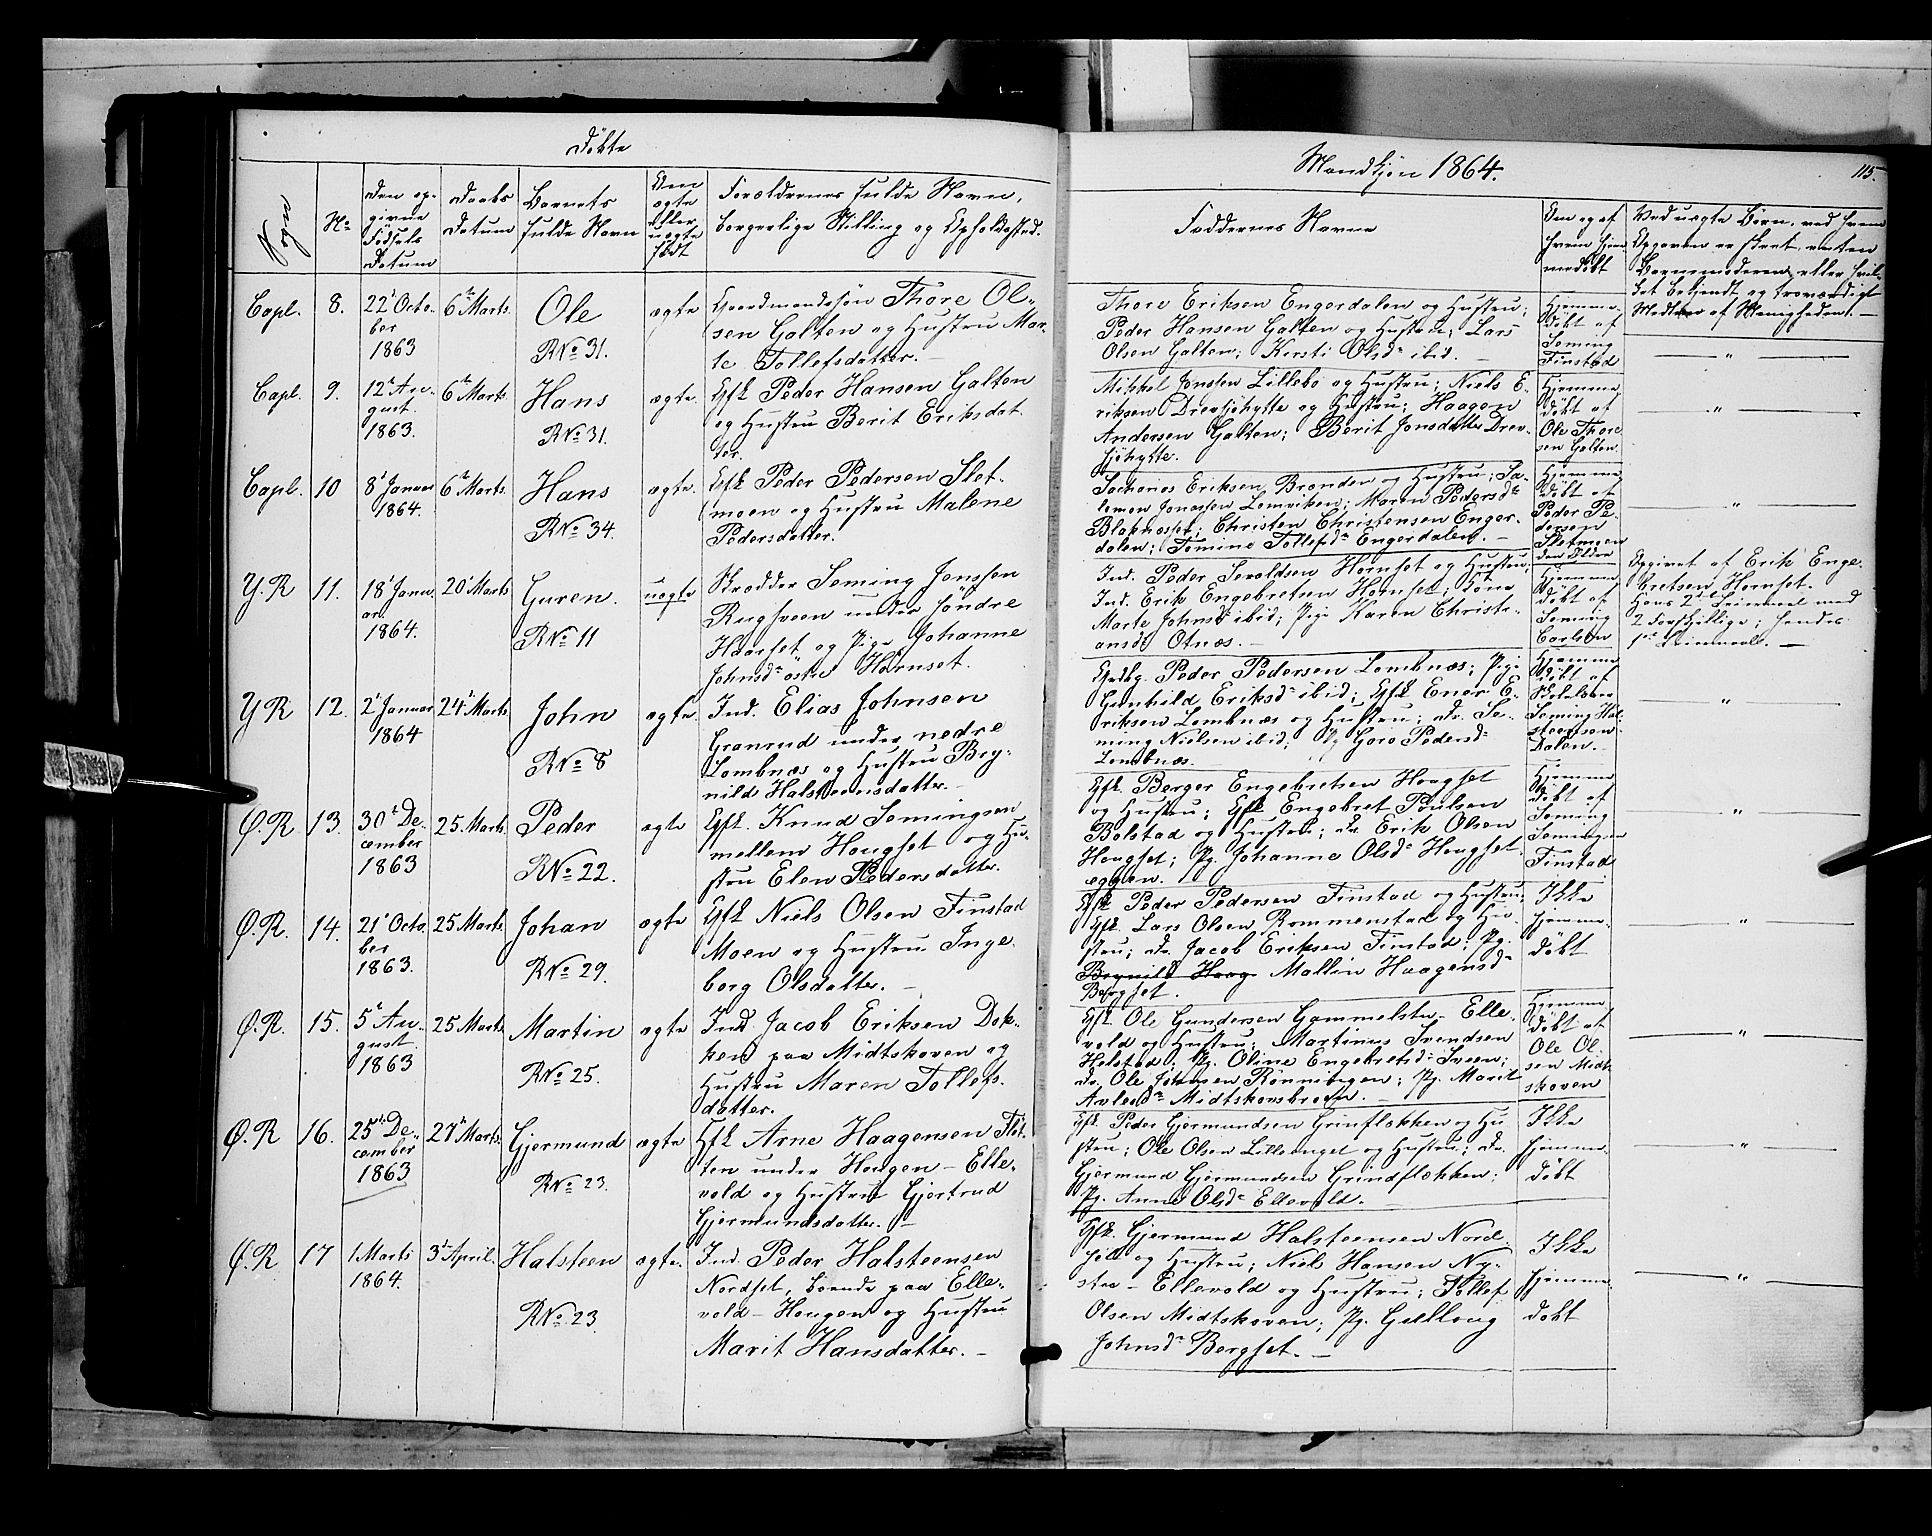 Døbte
Mandkjøn 1864.
115.
Sogn
No
Den op-
givne
Fødsels
Datum
Daabs
Datum
Barnets
fulde Navn
Om
ægte
eller
uægte
født
Forældrenes fulde Navn,
borgerlige Stilling og Opholdssted.
Faddernes Navne
Om og af
hvem hjem
medøbt
Ved uægte Børn, ved hvem
Opgaven er skeet, enten
Barnemoderen eller hvil-
ket bekjendt og troværdigt
Medlem af Menigheden. —
Capl. 8. 22 Octo-
ber
1863
6te Marts.
Ole
RNo 31.
ægte
Gaardmandssøn Thore Ol-
sen Galten og Hustru Mar-
te Tollefsdatter. —
Thore Eriksen Engerdalen og Hustru;
Peder Hansen Galten og Hustru; Lars
Olsen Galten; Kersti Olsdr ibid. —
Hjemme
døbt af
Seming
Finstad
— " —
Capl. 9. 12 Au-
gust.
1863.
6te Marts.
Hans
RNo 31.
ægte.
Gfk Peder Hansen Galten
og Hustru Berit Eriksdat
ter.
Mikkel Jonssen Lillebo og Hustru; Niels E-
riksen Drevsjøhytte og Hustru; Haagen
Andersen Galten; Berit Jonsdatter Drev-
sjøhytte.
Hjemme
døbt af
Ole Thore
sen Galten
— " —
Capl. 10 8 Januar
1864.
6te Marts.
Hans
RNo 34.
ægte.
Gfk Peder Pedersen Slet-
moen og Hustru Malene
Pedersdatter.
Zacharias Eriksen Brænden og Hustru; Sa-
lomon Jonassen Lomviken; Maren Pedersdr
Blakhasset; Christen Christensen Enger-
dalen; Tomine Tollefsdr Engerdalen. —
Hjemme
døbt af
Peder Pe-
dersen
Sletmoen
den Eldre
— " —
Y.R 11. 18 Janu
ar.
1864.
20 Marts
Guren.
RNo 11
uægte
Skrædder Seming Jonssen
Rugsveen under søndre
Haarset og Pige Johanne
Johnsdr østre Hornset.
Ind. Peder Iveraldsen Hornset og Hustru;
Ind. Erik Engebretsen Hornset; Kone
Marte Johnsdr ibid; Pige Karen Christi-
ansdr Otnæs. —
Hjemme
døbt af
Seming
Carlsen
Opgivet af Erik Enge-
bretsen Hornset.
Hans 2det Leiermaal med
2 forskjellige; hendes
1ste Leiermaal. —
Y R 12. 2 Januar
1864
24 Marts
John
RNo 8
ægte.
Ind. Elias Johnsen
Granrud under nedre
Lombnæs og Hustru Bry-
nild Halsteensdatter. —
Peder Pedersen Lombnæs; Pige
Gunhild Eriksdr ibid; Gfk Ener E-
riksen Lombnæs og Hustru; Dr. Se-
ming Nielsen ibid; Pg Goro Pedersdr
Lombnæs.
Hjemme
døbt af
Skolelærer
Seming Hal-
steensen
Dalen.
— " —
Ø.R 13. 30 De-
cember
1863
25. Marts
Peder
RNo 22.
ægte
Gfk. Knud Semingsen
mellem Hougset og Hu-
stru Elen Pedersdatter.
Gfk. Berger Engebretsen Hougset
og Hustru; Gfk Engebret Poulsen
Bolstad og Hustru; Dr. Erik Olsen
Hougset; Pg. Johanne Olsdr Hougset
æggen.
Hjemme
døbt af
Seming
Semingsen
Finstad
— " —
Ø.R. 14. 21 Octo
ber
1863.
25 Marts.
Johan
RNo 29.
ægte
Gfk Niels Olsen Finstad
Moen og Hustru Inge-
borg Olsdatter. —
Gfk Peder Pedersen Finstad og Hustru;
Gfk. Lars Olsen Rommenstad og Hu-
stru; Dr. Jacob Eriksen Finstad; Pg.
Brynild Haag Mallin Haagensdr
Bergset.
Ikke
hjemme-
døbt
— " —
Ø.R. 15. 5 Au-
gust.
1863
25 Marts
Martin
RNo 25.
ægte
Ind. Jacob Eriksen Dok-
ken paa Midtskoven og
Hustru Maren Tollefs-
datter.
Gfk. Ole Gundersen Gammelstu-Elle-
vold og Hustru; Martinus Svendsen
Helstad; Pg. Oline Engebretsdr Sveen;
Dr. Ole Johnsen Rønningen; Pg. Marit
Avlesdr Midtskovsbroen. —
Hjemme
døbt af
Ole Ol
sen Midt
skoven
— " —
Ø.R 16. 25 De-
cember
1863
27 Marts
Gjermund
RNo 23.
ægte
Gfk Arne Haagensen Flet-
ten under Hougen-Elle-
vold og Hustru Gjertrud
Gjermundsdatter. —
Gfk. Peder Gjermundsen Grinflokken og Hu
stru; Ole Olsen Lilleenget og Hustru; Dr.
Gjermund Gjermundsen Grindflokken;
Pg. Anne Olsdr Ellevold. —
Ikke
hjemme-
døbt
— " —
Ø.R 17 1 Marts
1864.
3 April.
Halsteen
RNo 23.
ægte.
Ind Peder Halsteensen
Nordset, boende paa Elle-
vold-Hougen og Hustru
Marit Hansdatter. —
Gfk. Gjermund Halsteensen Nord-
set og Hustru; Niel Hansen Ny-
stu-Ellevold og Hustru; Tollef
Olsen Midtskoven; Pg. Gulloug
Johnsdr Bergset. —
Ikke
hjemme
døbt
— " —